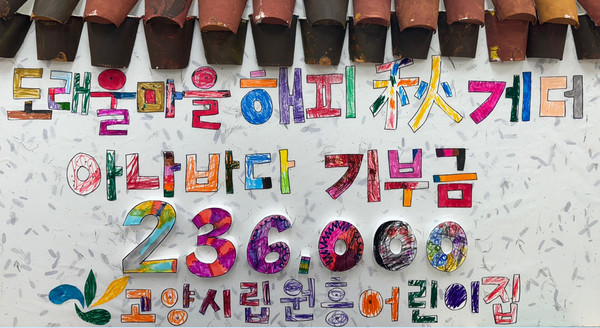 도래울마을 해피秋게더
아나바다 기부금
236,000
고양시립원흥어린이집